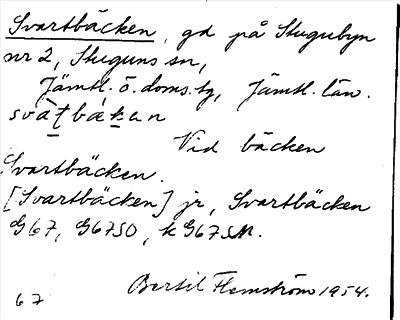 Svartbäcken, gd på Stugubyn
nr 2, Stuguns sn,
Jämtl. ö. doms. tg, Jämtl. län.
svàṭbák̬ən
Vid bäcken
Svartbäcken.
[Svartbäcken] jr, Svartbäcken
G67, G67SO, k G67SM.
Bertil Flemström 1954.
67